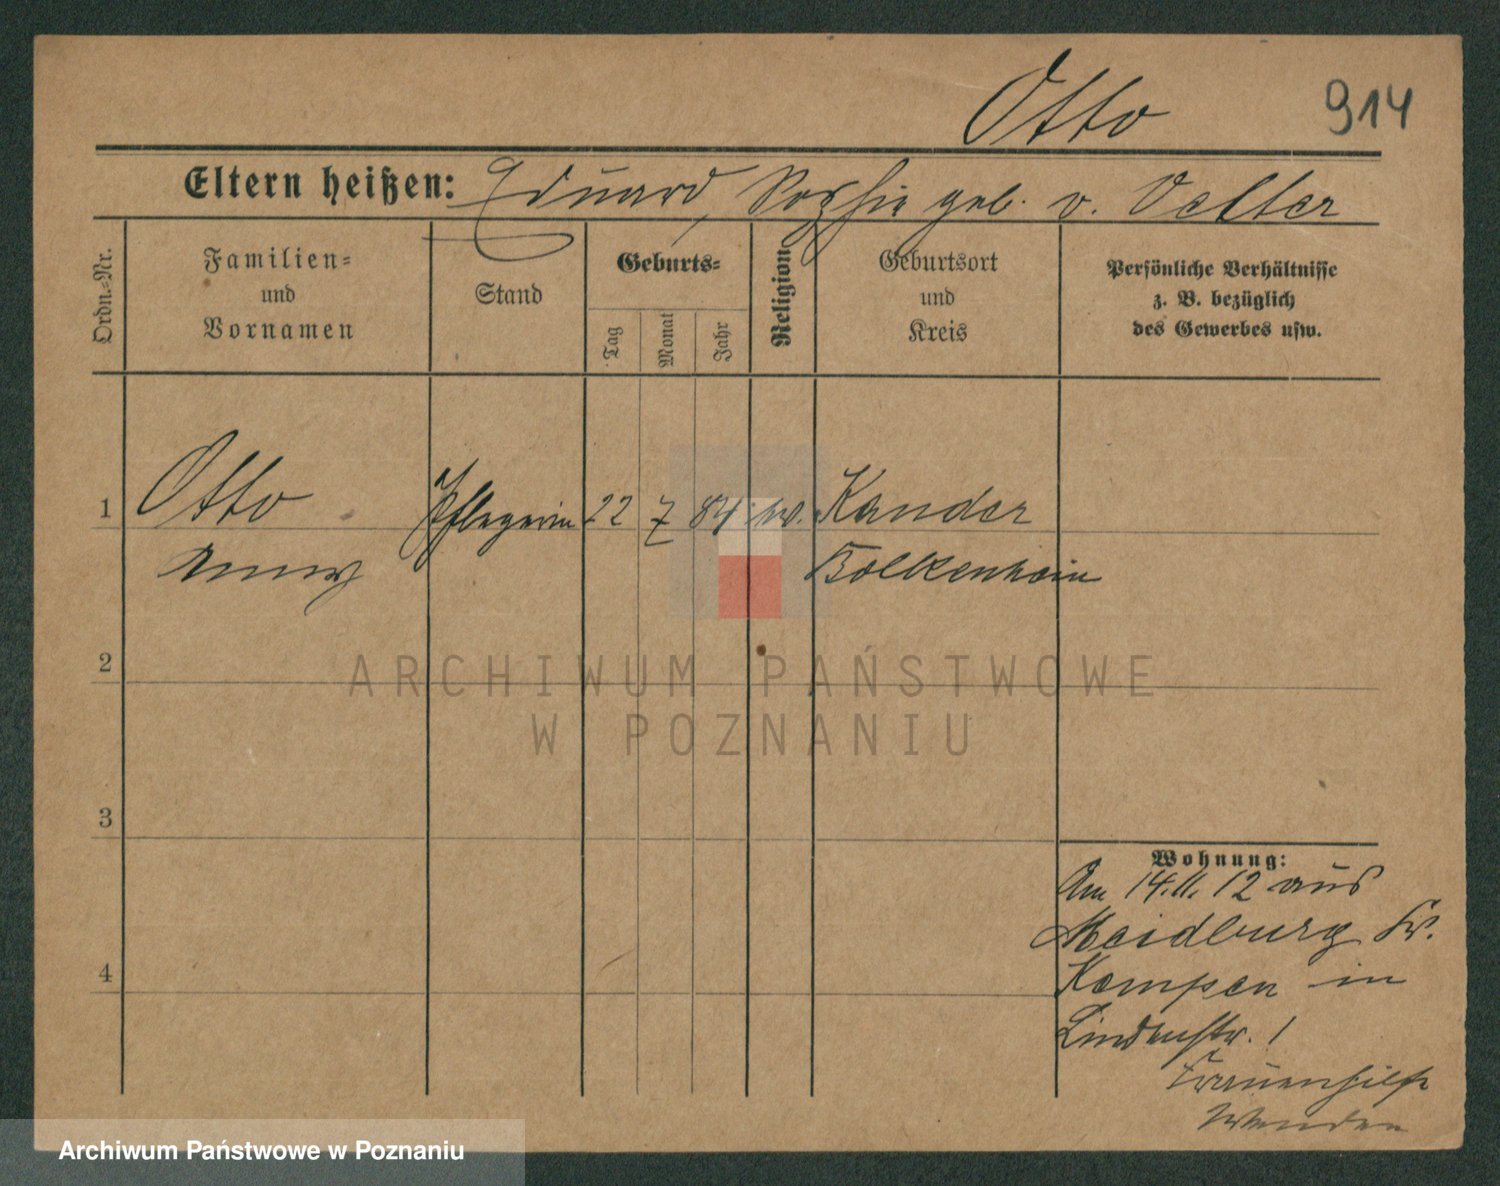 Otto 914
Eltern heißen: Eduard, Sophie geb. v. Oelter
Ordn.-Nr.
Familien- und Vornamen
Stand
Geburts-
Tag
Monat
Jahr
Religion
Geburtsort und Kreis
Persönliche Verhältnisse
z. B. bezüglich
des Gewerbes usw.
1 Otto Pflegerin 22 7 84 ev. Kauder
Anny Bolkenhain
2
3
4
Wohnung:
Am 14.11.12 aus
Maidburg Kr.
Kempen in
Lindenstr. 1
Frauenhilfe
ARCHIWUM PAŃSTWOWE
W POZNANIU
Archiwum Państwowe w Poznaniu